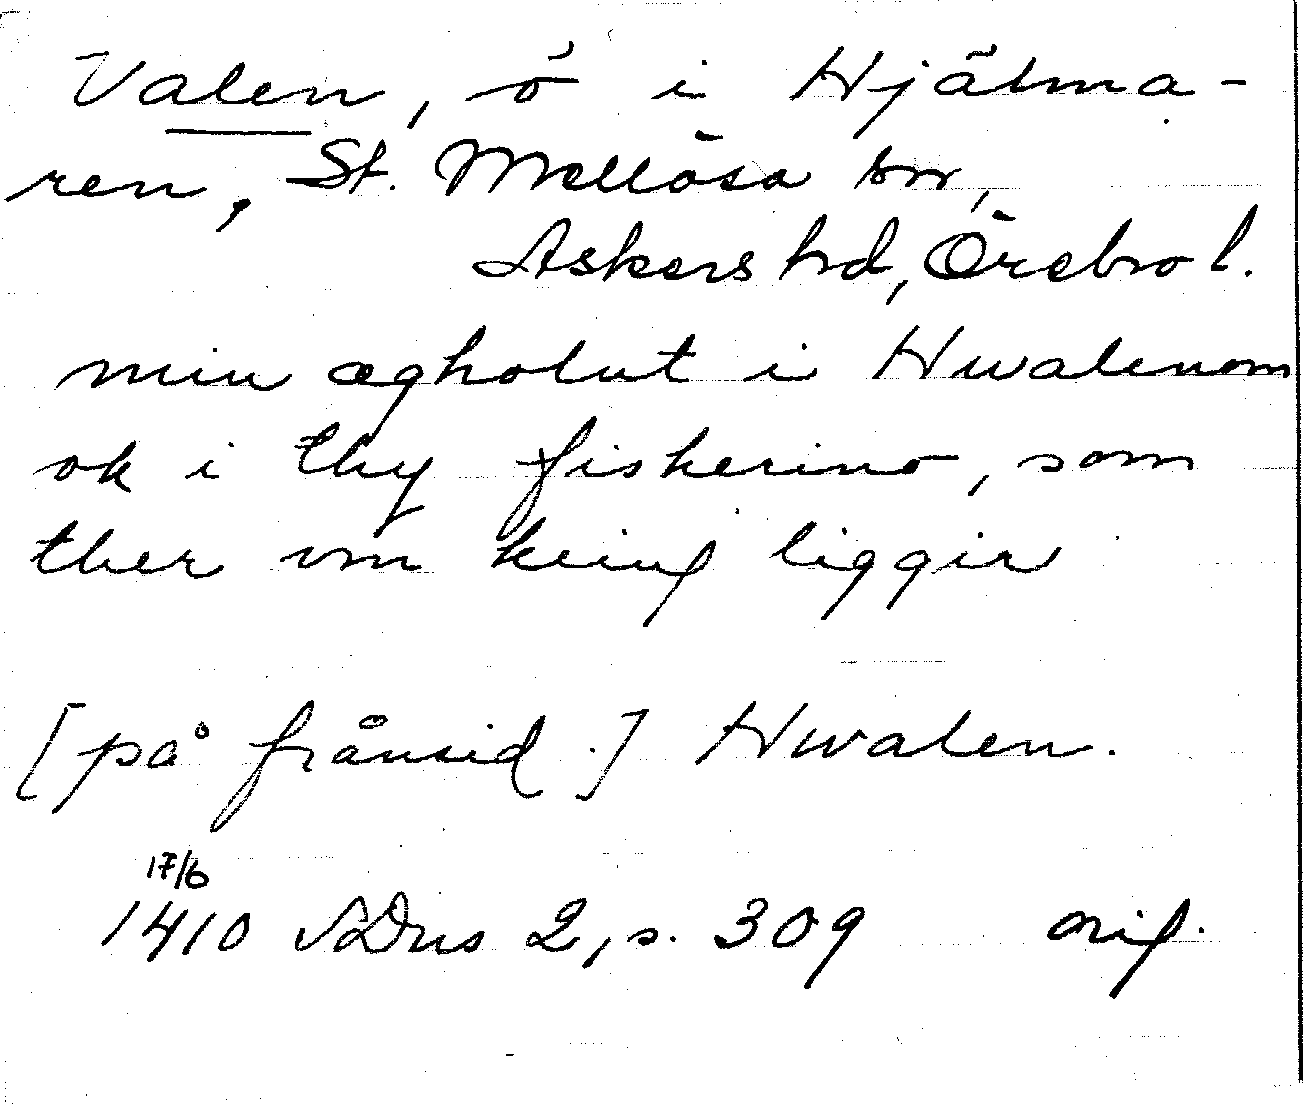 Valen, ö i Hjälma-
ren, St. Mellösa sn,
Askers hd, Örebro l.
min ægholut i Hwalenom
ok i thy fiskerino, som
ther vm kring liggir
[på frånsid.] Hwalen.
17/6
1410 SDns 2, s. 309 orig.